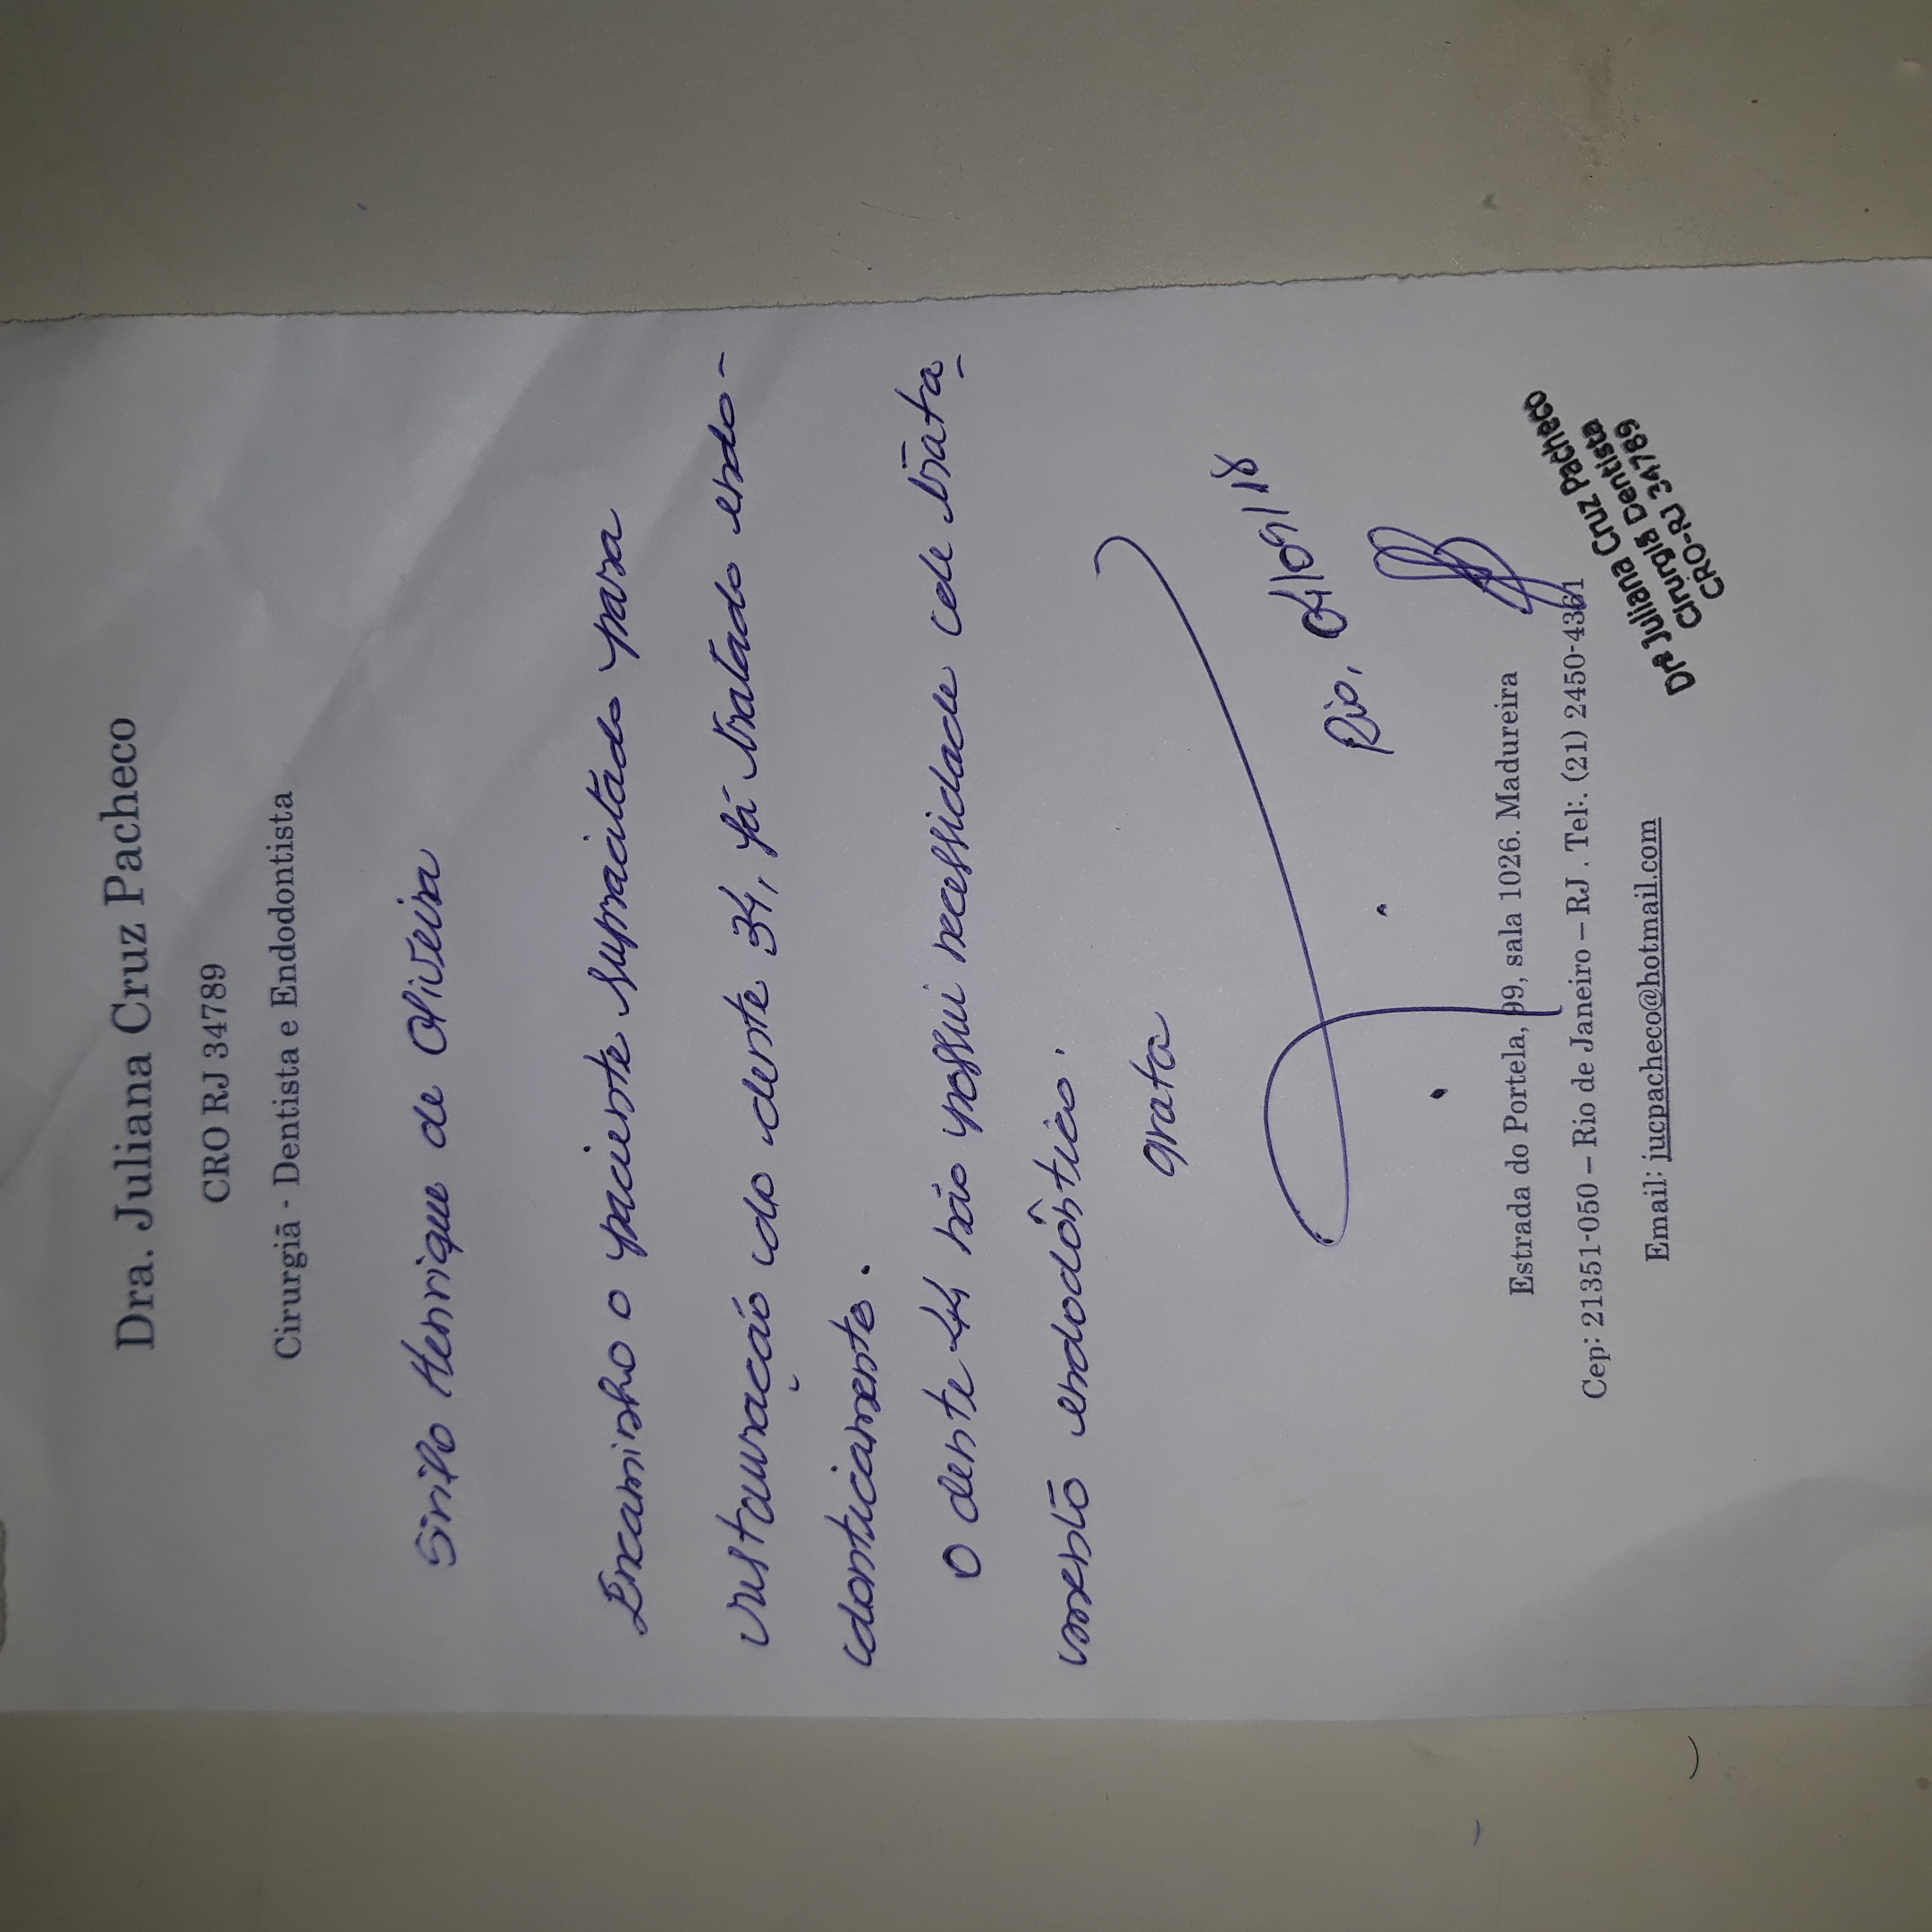 Dra. Juliana Cruz Pacheco
CRO RJ 34789
Cirurgiã - Dentista e Endodontista
Henrique de Oliveira
Encaminho o paciente supracitado para
restauração do dente 34, já tratado endo-
donticamente.
O dente 44 não possui necessidade de trata-
mento endodôntico.
Grata
Rio, 04/09/18
Estrada do Portela, 99, sala 1026. Madureira
Cep: 21351-050 – Rio de Janeiro – RJ . Tel:. (21) 2450-4361
Email: jucpacheco@hotmail.com
Drª Juliana Cruz Pacheco
Cirurgiã Dentista
CRO-RJ 34789